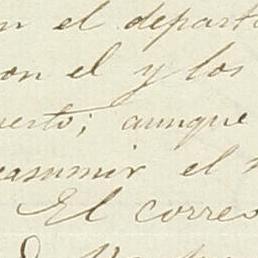 n el departa
on el y los
uesto; aunque
easumir el
El correo